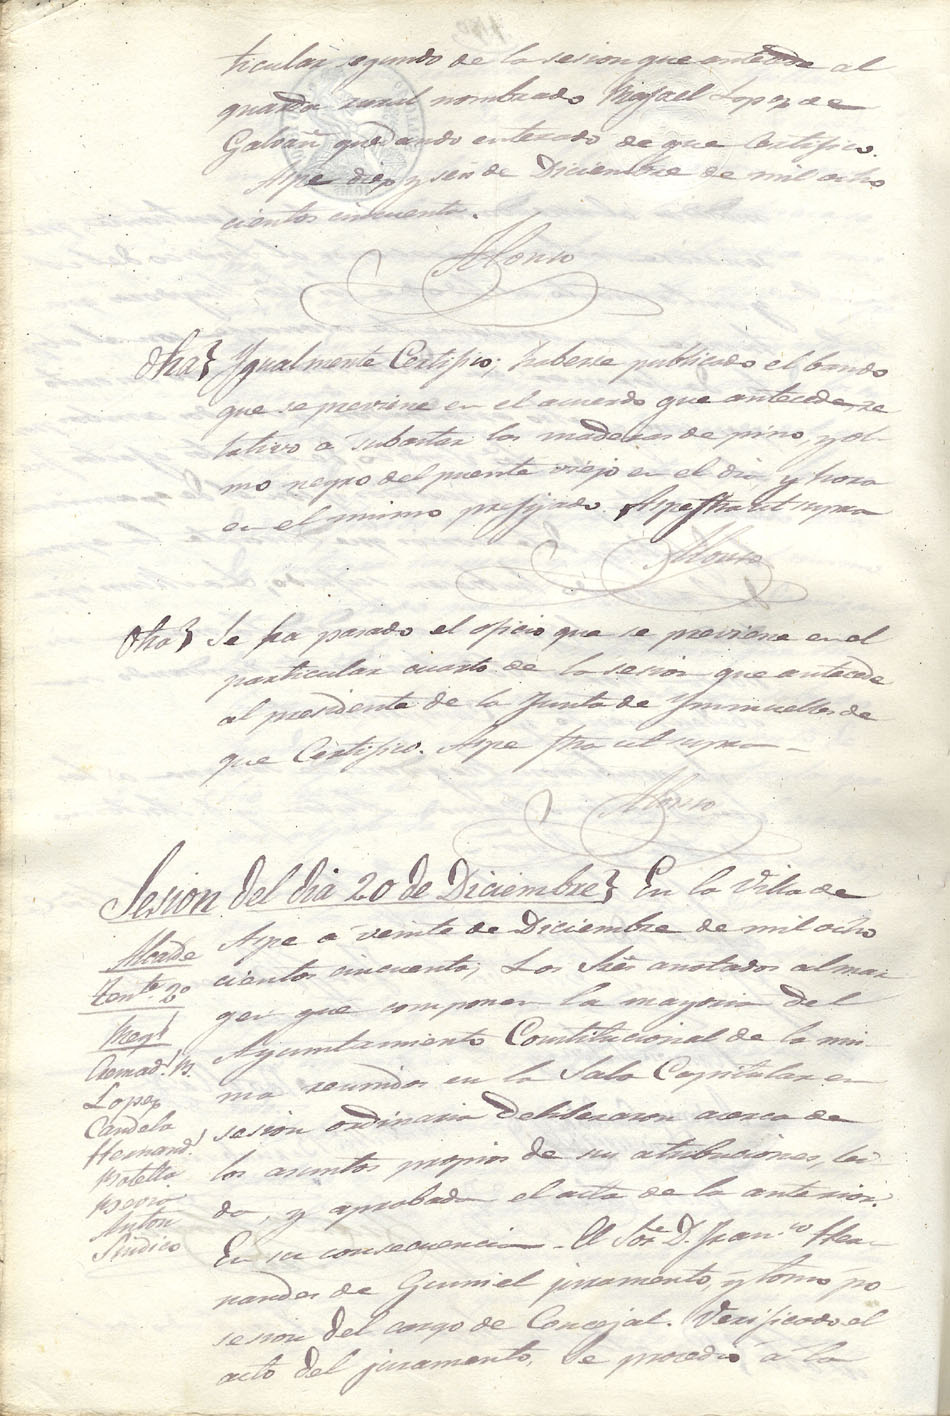 ticular segundo de la sesion que antecede al
guarda rural nombrado Rafael Lopez de
Galvañ quedando enterado de que Certifico.
Aspe diez y seis de Diciembre de mil ocho
cientos cincuenta.
Alonso
Otra} Ygualmente Certifico; haberse publicado el bando
que se previene en el acuerdo que antecede, re
lativo a subastar las maderas de pino, y ol-
mo negro del puente viejo en el dia, y hora
en el mismo prefijado. Aspe fha ut supra
Alonso
Otra} Se ha pasado el oficio que se previene en el
particular cuarto de la sesion que antecede
al presidente de la Junta de
que Certifico. Aspe fha ut supra
Alonso
Sesion del dia 20 de Diciembre} En la Villa de
Aspe a veinte de Diciembre de mil ocho
cientos cincuenta; Los Sres anotados al mar
gen que componen la mayoria del
Ayuntamiento Constitucional de la mis-
ma reunidos en la Sala Capitular en
sesion ordinaria deliberaron acerca de
los asuntos propios de sus atribuciones, lei
da, y aprobada el acta de la anterior.
En su consecuencia - El Sor. Dn. Franco Her-
nandes de Gumiel juramento, y tomo po-
sesion del cargo de Concejal. Verificado el
acto del juramento, se procedio a la
Alcalde
Tente. 2o
Cremad.s B.
Lopez
Candela
Hernand.s
Botella
Anton
Sindico